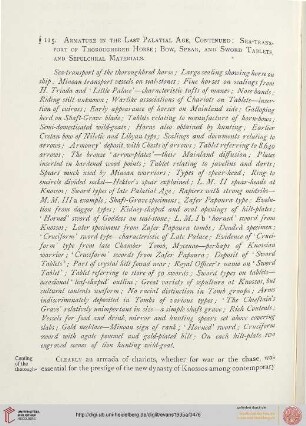 § 115. Armature in the Last Palatial Age, Continued; Sea-transport
port of Thoroughbred Horse; Bow, Spear, and Sword Tablets,
and Sepulchral Materials.
Sea-transport of the thoroughbred horse; Large seeling showing horse on
ship; Minoan transport vessels on seal-stones; Fine horses on sealings from
H. Triada and 'Little Palace'—characteristic tufts of manes; Nose bands;
Riding still unknown; Warlike associations of Chariots on Tablets—insertion
tion of cuirass; Early appearance of horse on Mainland side; Galloping
horse on Shaft-Grave blade; Tablets relating to manufacture of horn-bows;
Semi-domesticated wild-goats; Horns also obtained by hunting; Earlier
Cretan bow of Hittite and Libyan type; Sealings and documents relating to
arrows; Armoury deposit with Chests of arrows; Tablet referring to 8640
arrows; The bronze 'arrow-plates'—their Mainland diffusion; Plates
inserted in hardened wood points; Tablet relating to javelins and darts;
Spears much used by Minoan warriors; Types of spear-head; Ring to
enarch divided socket—Hector's spar explained; L. M. II spear-heads at
Knossos; Sword types of late Palatial Age; Rapiers with strong midrib—
M. M. III a example; Shaft-Grave specimens; Zafer Papoura type; Evolution
tion from dagger types; Eblong-shaped and openings of hilt-plates;
'Horned' sword of Goddess on seal-stone; L. M. I b 'horned' sword from
Knossos; Later specimens from Zafer Papoura tombs; Dendrà specimen;
'Cruciform' sword type—characteristic of Late Palace; Evidence of 'Cruciform'
form' type from late Chamber Tomb, Mycenae—perhaps of Knossian
warrior; 'Cruciform' swords from Zafer Papoura; Deposit of 'Sword
Tablets'; Part of crystal hilt found near; Royal Officer's name on 'Sword
Tablet'; Tablet referring to store of 50 swords; Sword types on tablets—
occasional 'leaf-shaped' outline; Great variety of sepulture at Knossos, but
cultural contents uniform; No racial distinction in Tomb groups; Arms
indiscriminately deposited in Tombs of various types; 'The Chieftain's
Grave' relatively unimportant in size—a simple shaft grave; Rich Contents;
Vessels for food and drink, mirror and hunting spears at above covering
slabs; Gold necklace—Minoan sign of rank; 'Horned' sword; Cruciform
sword with agate pommel and gold-plated hilt; On each hilt-plate, two
engraved scenes of lion hunting wild-goat.
Clearly an armada of chariots, whether for war or the chase, was
essential for the prestige of the new dynasty of Knossos among contemporary
Coming
of the
thorough-
http://digi.ub.uni-heidelberg.de/diglit/evans1935a/0476